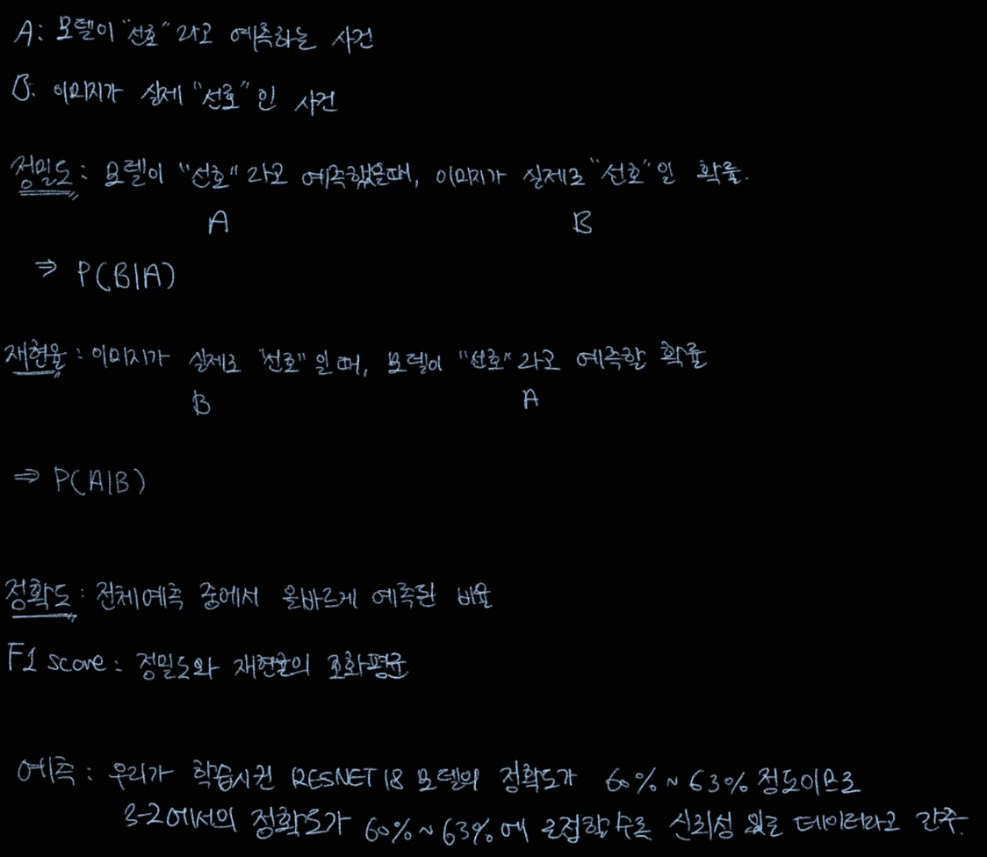 A: 모델이 "선호" 라고 예측하는 사건
B: 이미지가 실제 "선호" 인 사건
정밀도 : 모델이 "선호" 라고 예측했을때, 이미지가 실제로 "선호" 일 확률.
A B
⇒ P(B|A)
재현율 : 이미지가 실제로 "선호" 일 때, 모델이 "선호" 라고 예측할 확률
B A
⇒ P(A|B)
정확도 : 전체예측 중에서 올바르게 예측된 비율
F1 score : 정밀도와 재현율의 조화평균
예측 : 우리가 학습시킨 RESNET 18 모델의 정확도가 60% ~ 63% 정도이므로
3-2에서의 정확도가 60% ~ 63% 에 근접할 수록 신뢰성 있는 데이터라고 간주.